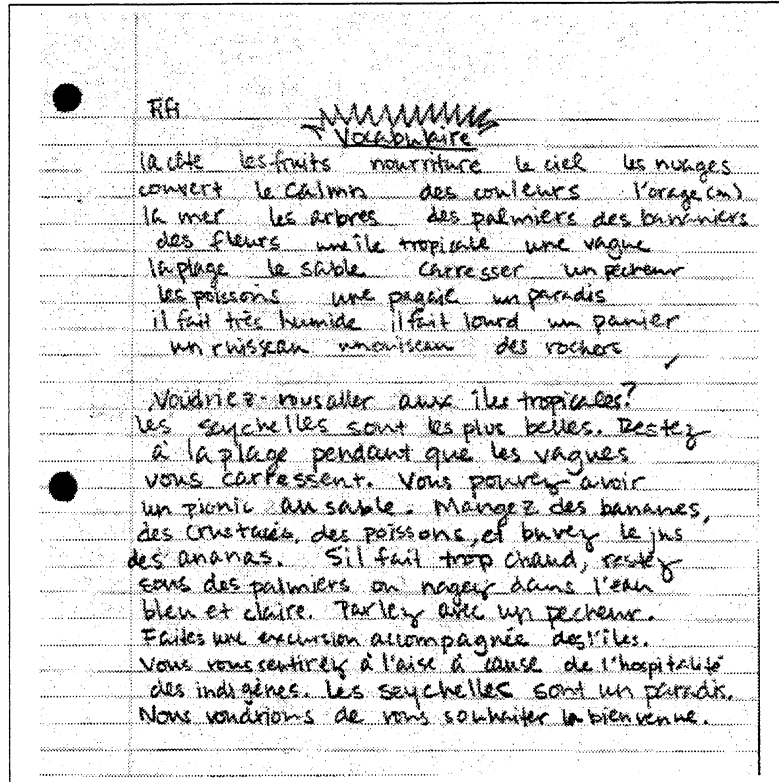 Fifi
Vocabulaire
la côte les fruits nourriture le ciel les nuages
couvert le calmn des couleurs l'orage (m)
la mer les arbres des palmiers des bananiers
des fleurs une île tropicale une vague
la plage le sable carresser un pecheur
les poissons une pagaie un paradis
il fait très humide il fait lourd un panier
un ruisseau un ouiseau des rochers
Voudriez-vous aller aux îles tropicales?
Les seychelles sont les plus belles. Restez
à la plage pendant que les vagues
vous carressent. Vous pouvez avoir
un picnic au sable. Mangez des bananes,
des crustacés, des poissons, et buvez le jus
des ananas. S'il fait trop chaud, restez
sous des palmiers ou nagez dans l'eau
bleu et claire. Parlez avec un pecheur.
Faites une excursion accompagnée des l'îles.
Vous vous sentirez à l'aise à cause de l'hospitalité
des indigènes. Les seychelles sont un paradis.
Nous voudrions de vous souhaiter la bienvenue.